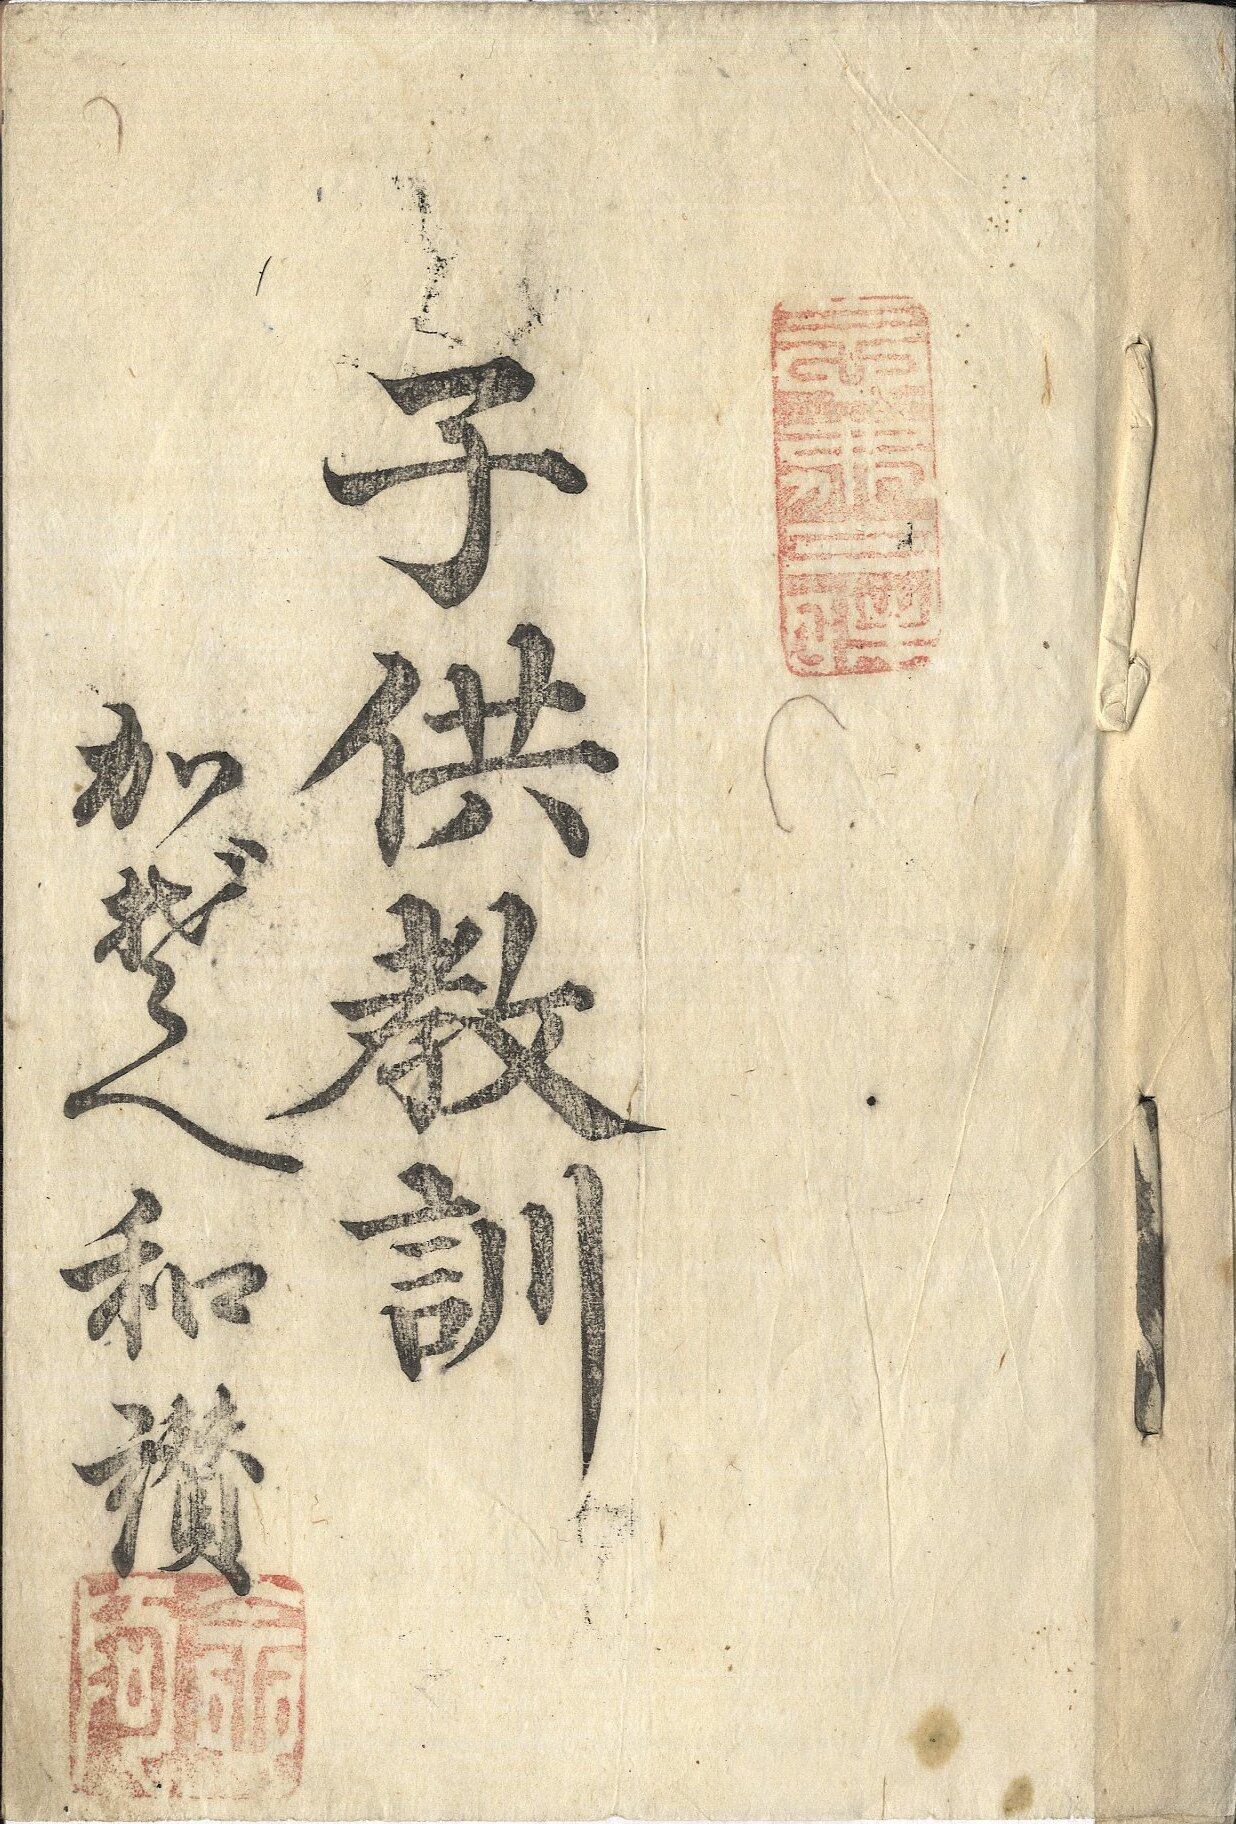 子供教訓
加ぞへ和讃